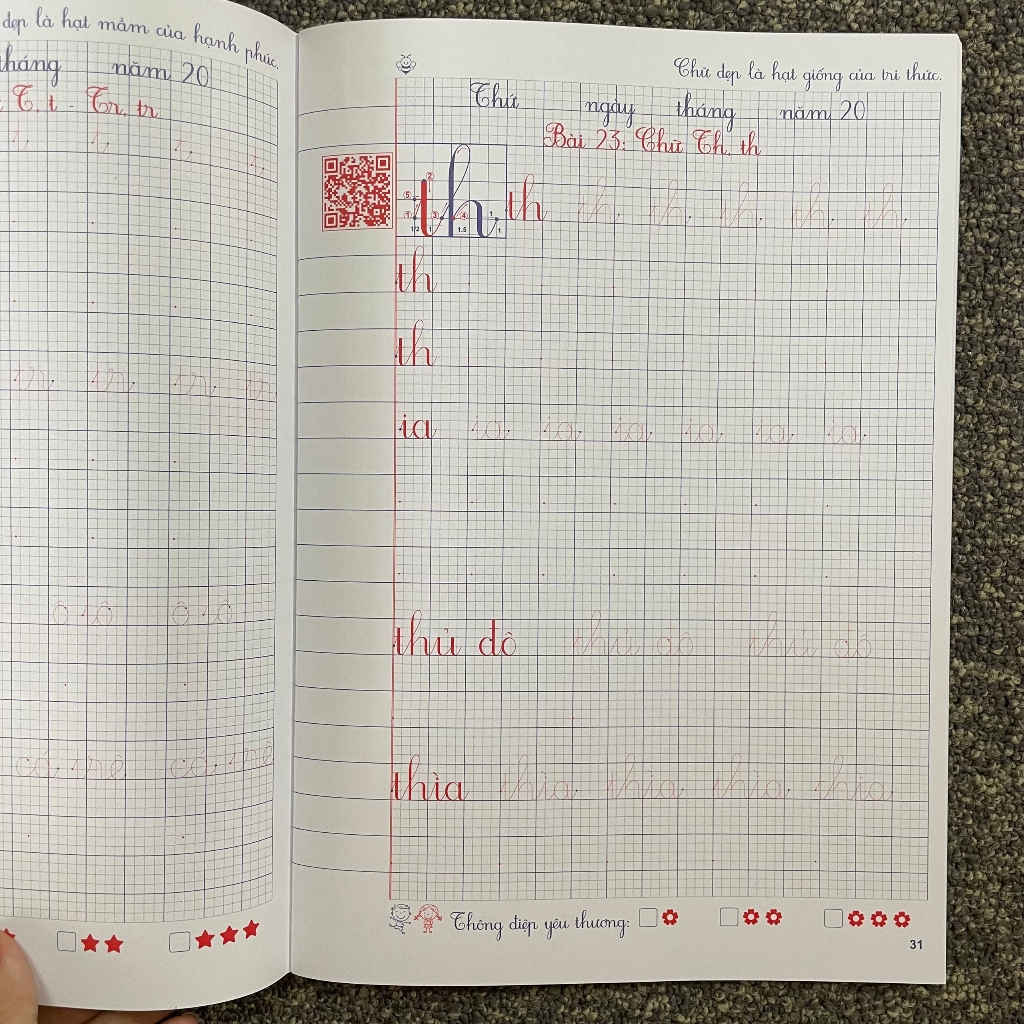 đẹp là hạt mầm của hạnh phúc.
tháng năm 20
T, t - Tr, tr
Chữ đẹp là hạt giống của tri thức.
Thứ ngày tháng năm 20
Bài 23: Chữ Th, th
th th th th th th th
5 2 1 3 4 1
1/2 1 1.5 1
th
th
ia ia ia ia ia ia ia
thủ đô thủ đô thủ đô
thìa thìa thìa thìa thìa
Thông điệp yêu thương:
31